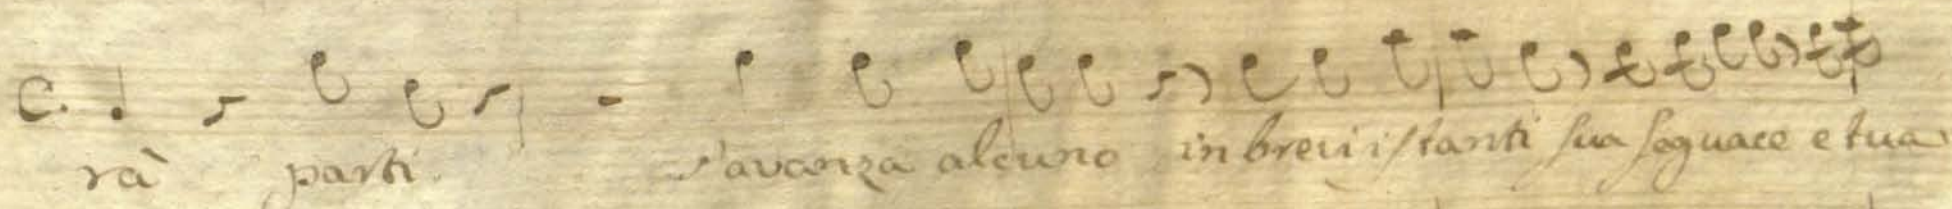 rà parti. s'avanza alcuno in brevi istanti sua seguace e tua